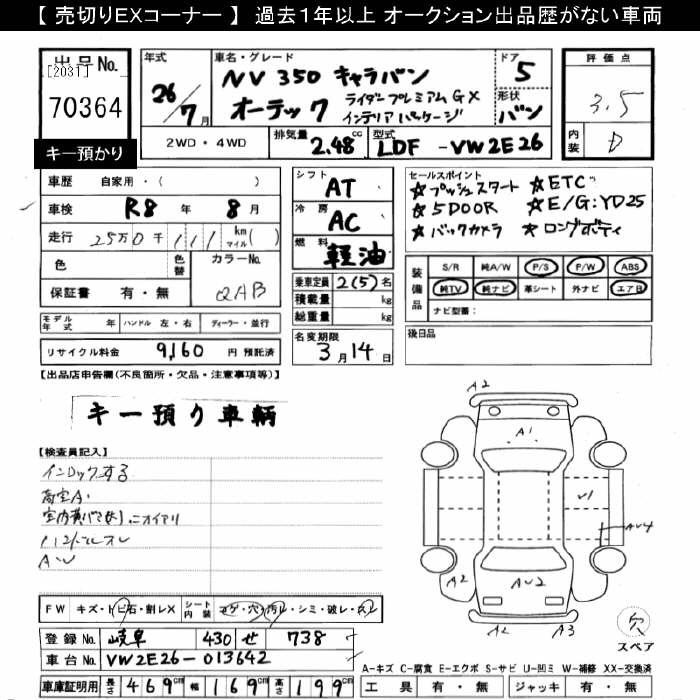 【 売切りEXコーナー 】 過去1年以上 オークション出品歴がない車両
出品No.
[2031]
70364
キー預かり
年式
26/7月
車名・グレード
NV350 キャラバン
オーテック
ライダープレミアムGX
インテリアパッケージ
ドア
5
形状
バン
評価点
3.5
内装
D
2WD・4WD
排気量
2.48cc
型式
LDF-VW2E26
車歴
自家用・( )
車検
R8年8月
走行
25万0千111
km
マイル
( )
色
色替
カラーNo.
QAB
保証書
有・無
モデル年式
年
ハンドル 左・右
ディーラー・並行
リサイクル料金
9,160
円 預託済
シフト
AT
冷房
AC
燃料
軽油
乗車定員
2(5)名
積載量
kg
総重量
kg
名変期限
3月14日
セールスポイント
☆プッシュスタート ☆ETC
☆5DOOR ☆E/G:YD25
☆バックカメラ ☆ロングボディ
装備品
S/R 純A/W P/S P/W ABS
純TV 純ナビ 革シート 外ナビ エアB
ナビ型番:
後日品
【出品店申告欄(不良箇所・欠品・注意事項等)】
キー預り車輌
【検査員記入】
インロックする
AW
FW
キズ・トビ石・割レX
シート内装
コゲ・穴・汚レ・シミ・破レ・スレ
登録No.
岐阜 430 せ 738
車台No.
VW2E26-013642
車庫証明用
長さ 469cm 幅 169cm 高さ 199cm
A2
A1
U1
AU4
A2
AU2
A2
A3
穴
スペア
A-キズ C-腐食 E-エクボ S-サビ U-凹ミ W-補修 XX-交換済
工具 有・無 ジャッキ 有・無